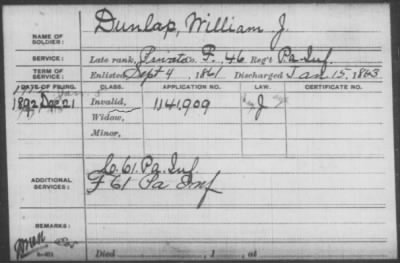 Dunlap, William J.
NAME OF SOLDIER:
SERVICE: Late rank, Private Co. F, 46 Reg't Pa. Inf.
TERM OF SERVICE: Enlisted Sept 4, 1861 Discharged Jan. 15, 1863
DATE OF FILING. CLASS. APPLICATION NO. LAW. CERTIFICATE NO.
1892 Dec 21 Invalid, 1141,909 J
Widow,
Minor,
ADDITIONAL SERVICES: Co. 61. Pa. Inf.
F 61 Pa Inf
REMARKS:
Died , 1 , at